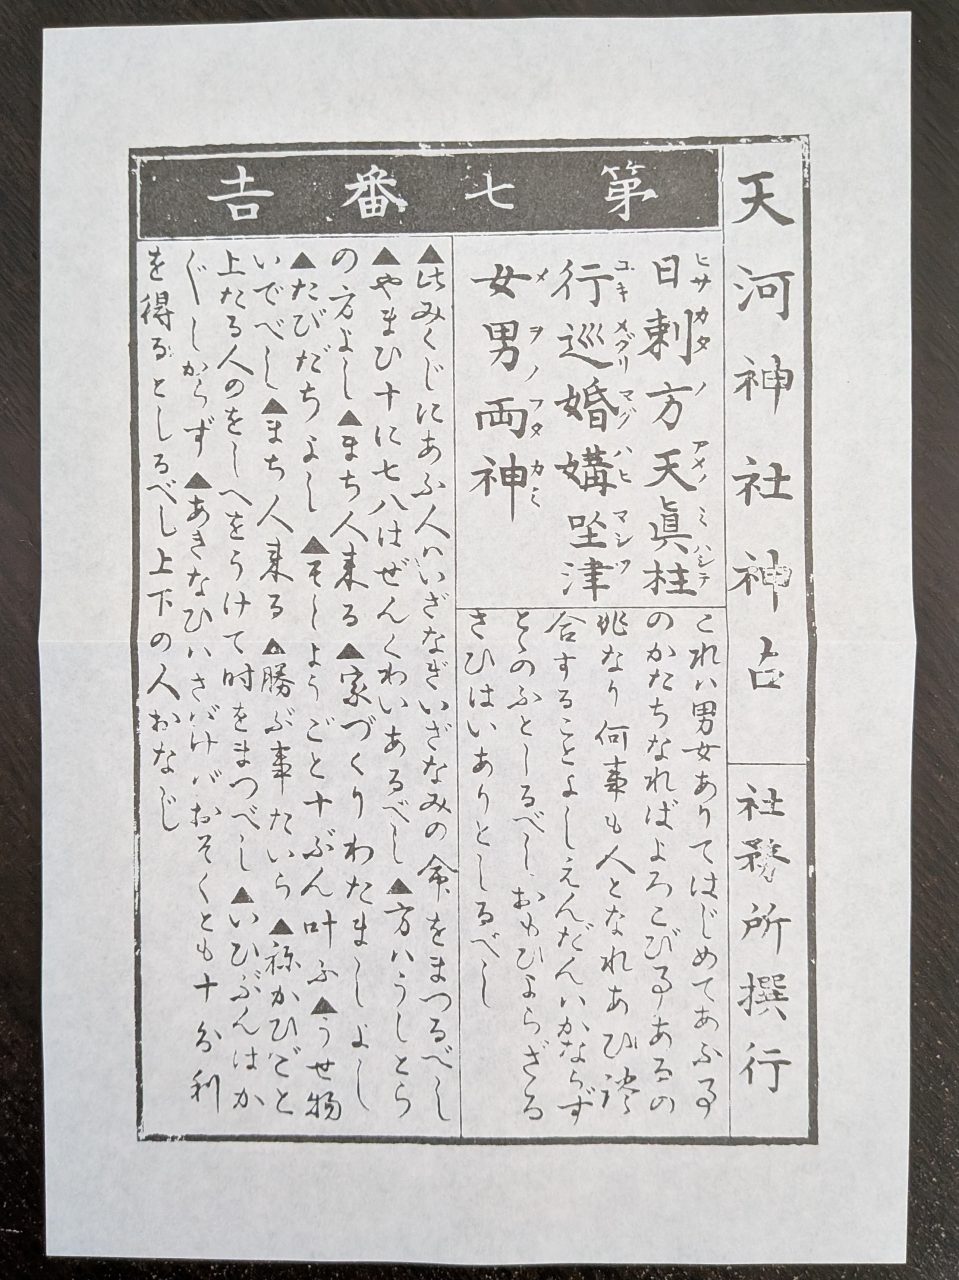 天河神社神占
社務所撰行
第七番吉
日刺方天眞柱
ヒサカタノアメノミハシラ
行巡婚媾坐津
ユキメグリマグハヒマシツ
女男両神
メヲノフタカミ
これハ男女ありてはじめてあふ事
のかたちなればよろこび事あるの
兆なり何事も人となれあひ
合することよしえんだんハかならず
とゝのふとしるべしおもひよらざる
さひはいありとしるべし
▲此みくじにあふ人ハいざなぎいざなみの命をまつるべし
▲やまひ十に七八はぜんくわいあるべし▲方ハうしとら
の方よし▲まち人来る▲家づくりわたましよし
▲たびだちよし▲そしようごと十ぶん叶ふ▲うせ物
いでべし▲まち人来る▲勝ぶ事たいら▲祢がひごと
上たる人のをしへをうけて時をまつべし▲いひぶんはか
ぐしからず▲あきなひハさばけバおそくとも十分利
を得るとしるべし上下の人おなじ